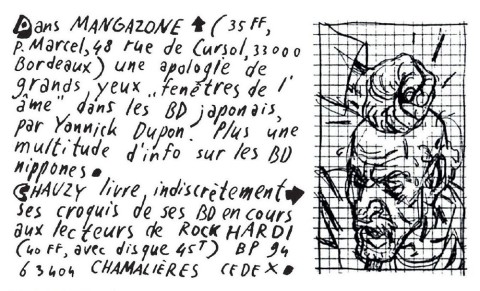 Dans MANGAZONE ↑ (35 FF,
P. Marcel, 48 rue de Cursol, 33000
Bordeaux) une apologie de
grands yeux „fenêtres de l'
âme" dans les BD japonais,
par Yannick Dupon. Plus une
multitude d'info sur les BD
nippones.
CHAUZY livre, indiscrètement →
ses croquis de ses BD en cours
aux lecteurs de ROCK HARDI
(40 FF, avec disque 45T) BP 94
63404 CHAMALIÈRES CEDEX.